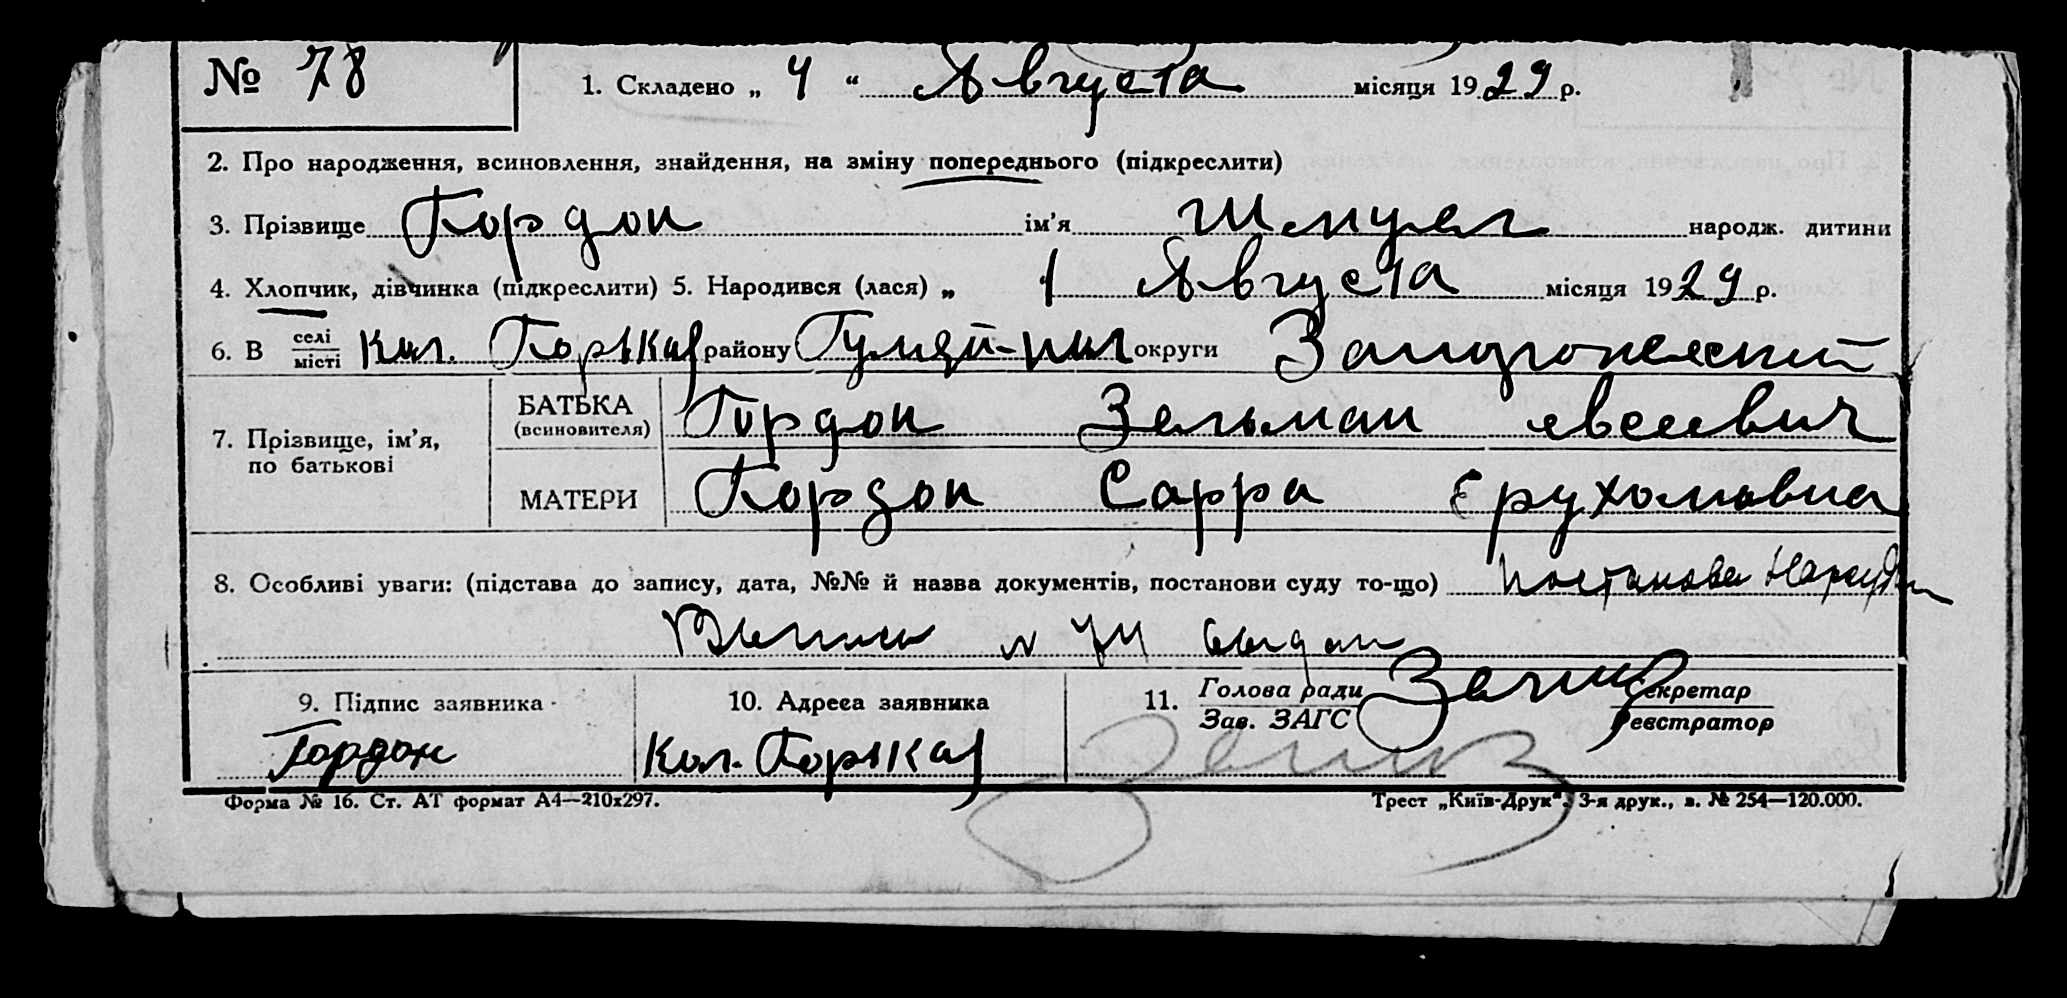 № 78 1. Складено „ 4 “ Августа місяця 1929 р.
2. Про народження, всиновлення, знайдення, на зміну попереднього (підкреслити)
3. Прізвище Гордон ім’я Шмуел народж. дитини
4. Хлопчик, дівчинка (підкреслити) 5. Народився (лася) „ 1 Августа місяця 1929 р.
6. В селі/місті Кол. Горькая району Гуляй-пол округи
7. Прізвище, ім’я, по батькові БАТЬКА (всиновителя) Гордон Зельман Евсеевич
МАТЕРИ Гордон Сарра Ерухомовна
8. Особливі уваги: (підстава до запису, дата, №№ й назва документів, постанови суду то-що) Постанова Нарсуда
9. Підпис заявника 10. Адреса заявника 11. Голова ради Секретар
Зав. ЗАГС Реєстратор
Гордон Кол. Горькая
Форма № 16. Ст. АТ формат А4—210х297. Трест „Київ-Друк“. 3-я друк., в. № 254—120.000.